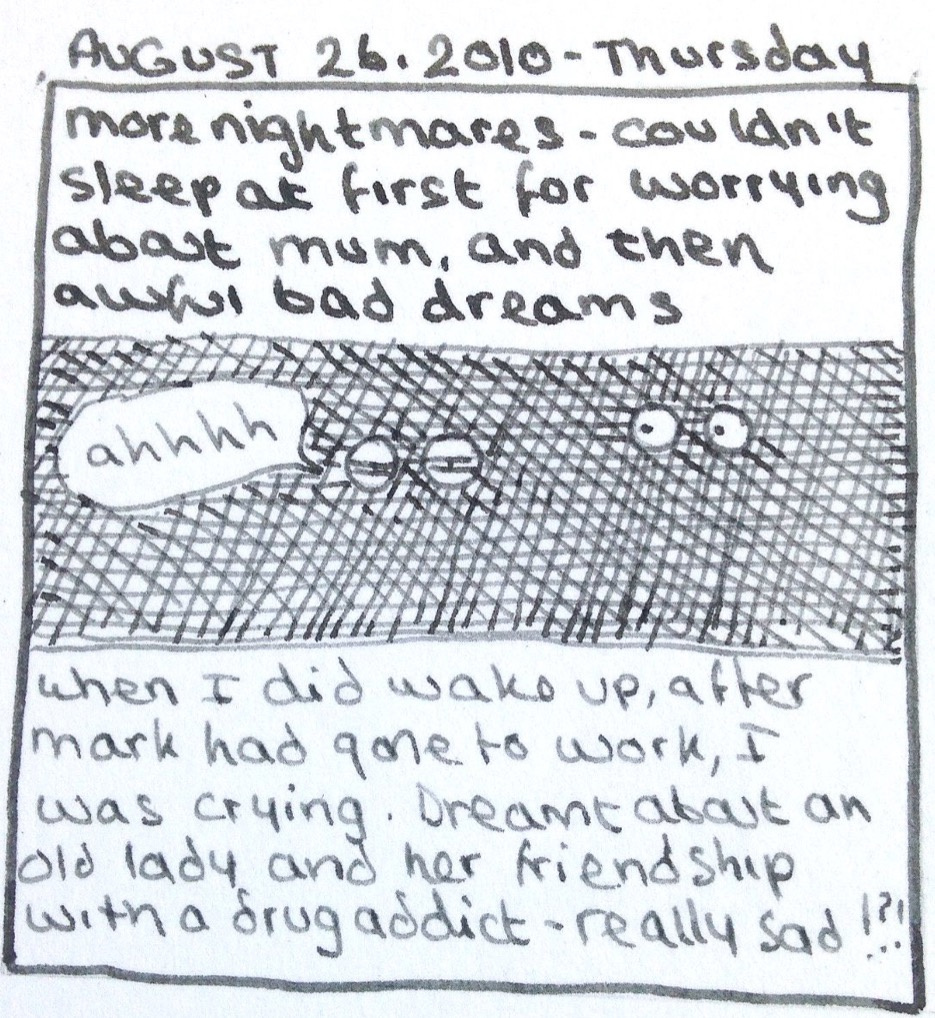 AUGUST 26. 2010 - Thursday
more nightmares - couldn't
sleep at first for worrying
about mum, and then
awful bad dreams
ahhhh
when I did wake up, after
mark had gone to work, I
was crying. Dreamt about an
old lady and her friendship
with a drug addict - really sad !?!